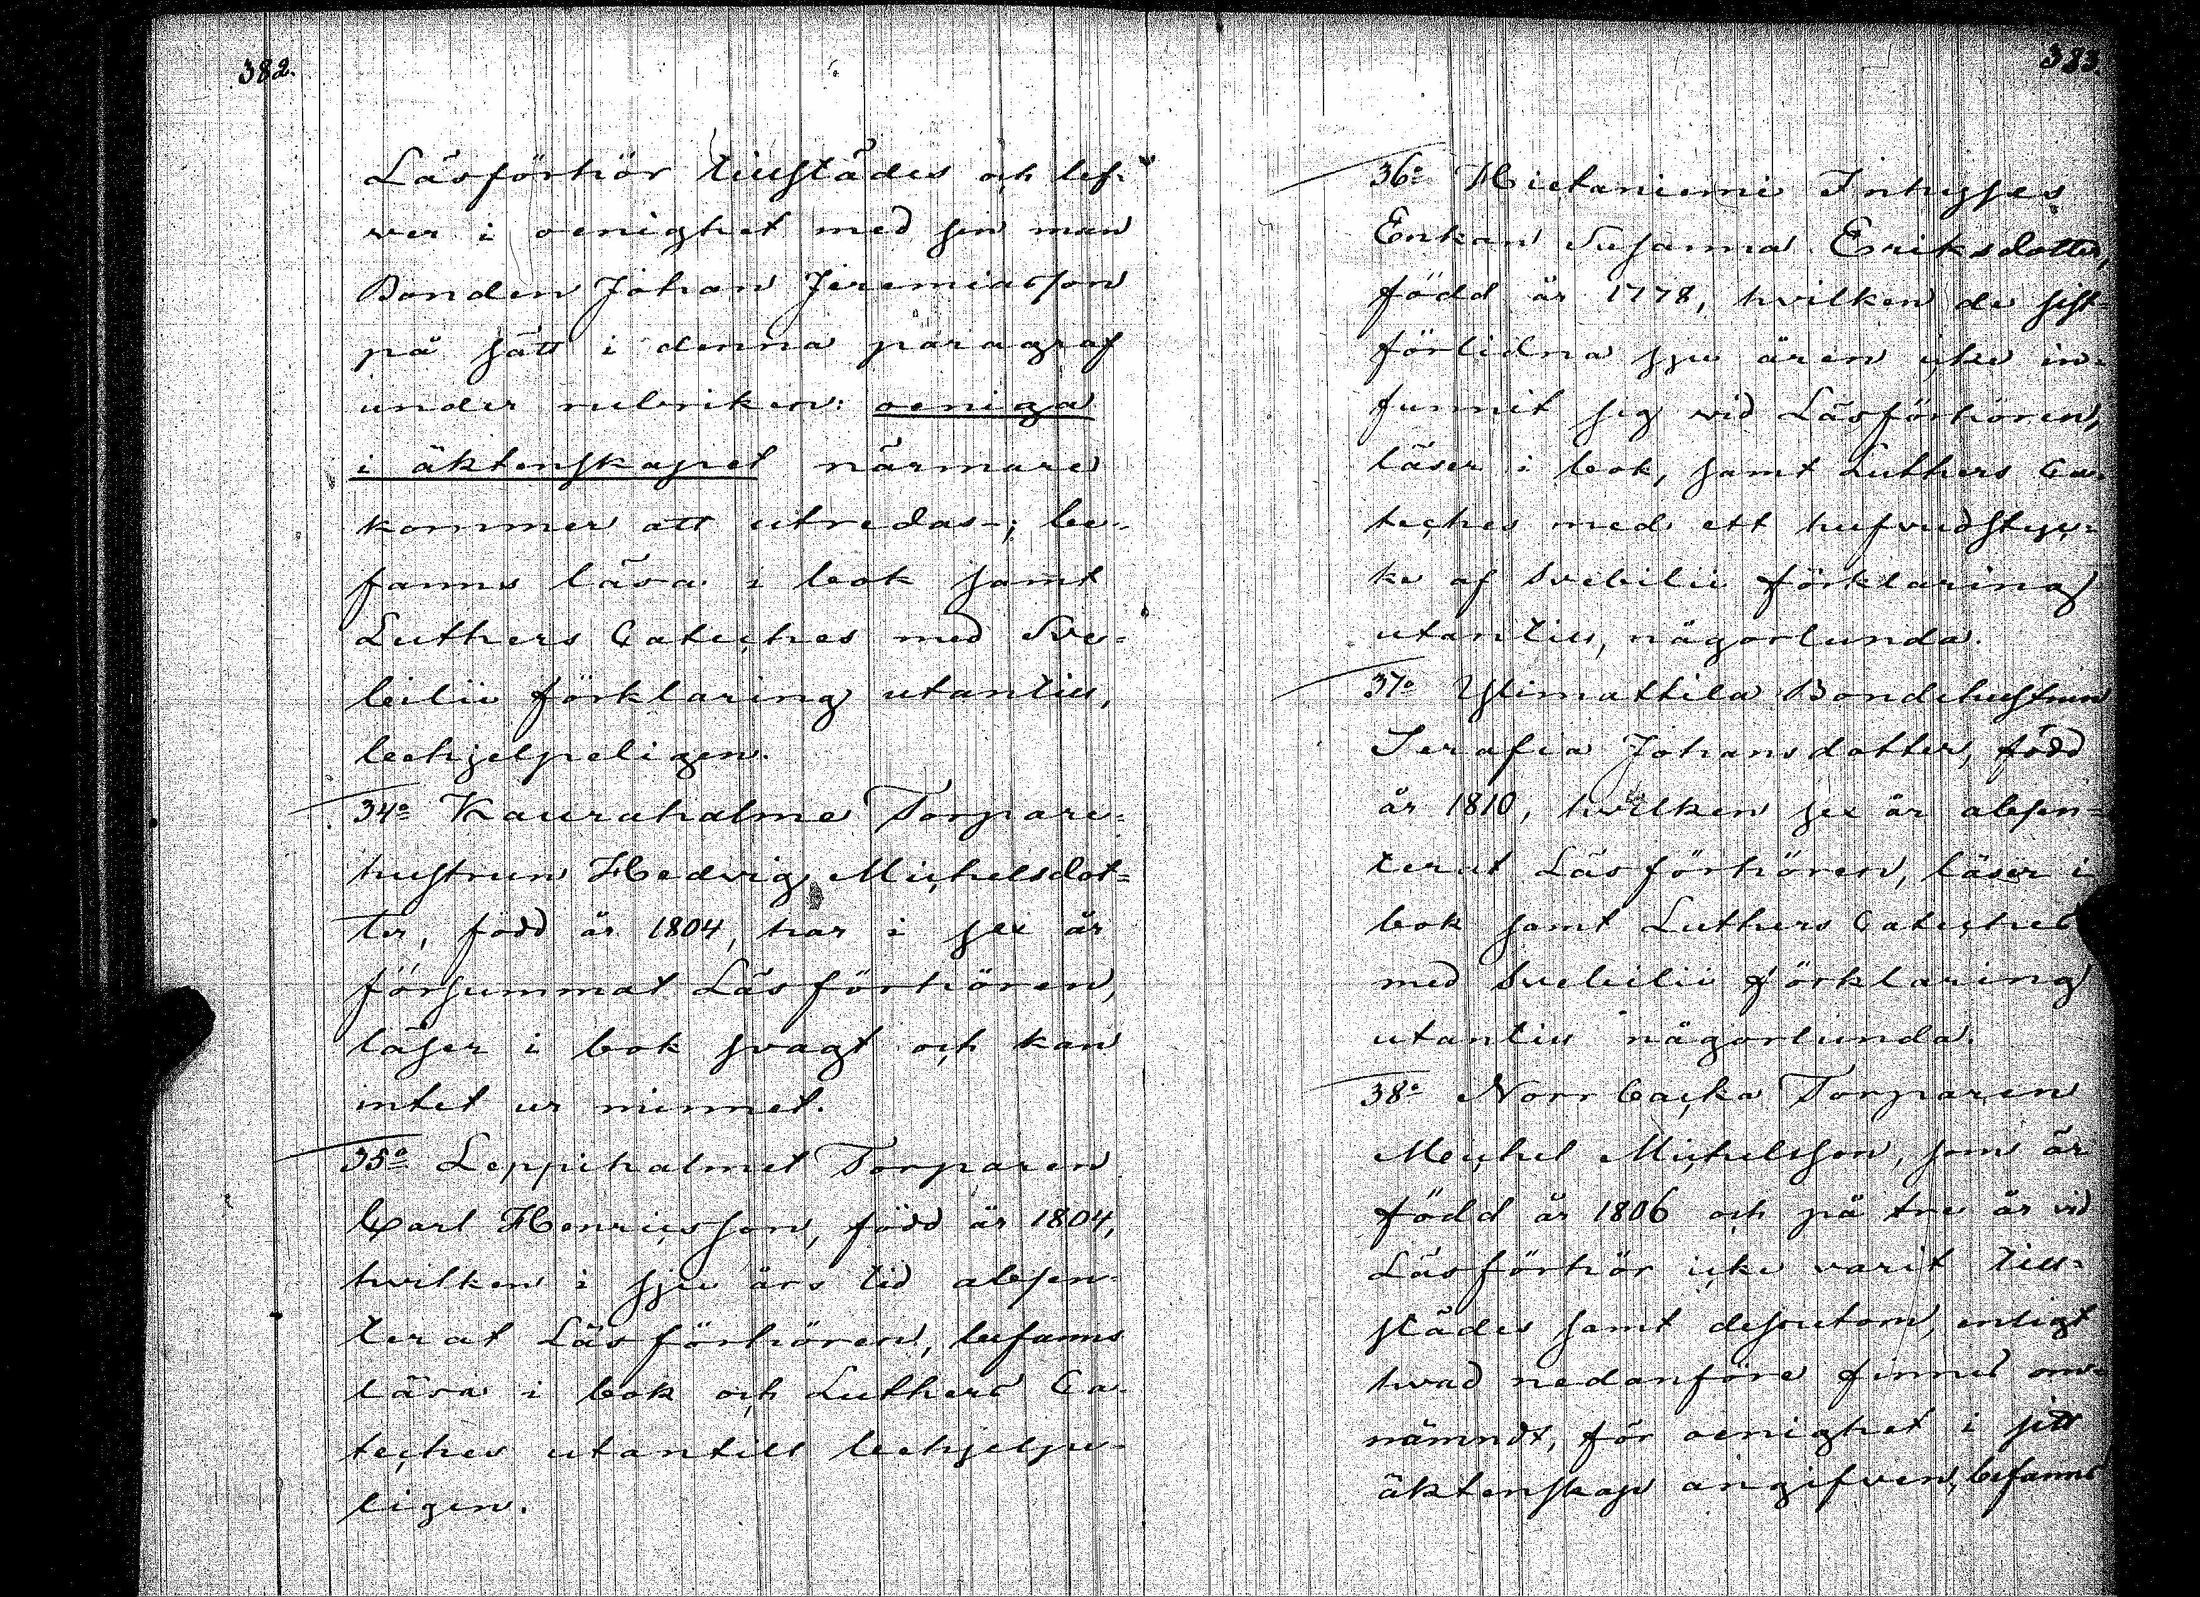 382.
Läsförhör tillstädes och lef-
ver i oenighet med sin man
Bonden Johan Jeremiasson
på sätt i denna paragraf
under rubriken: oeniga
i äktenskapet närmare
kommer att utredas-; be-
fanns läsa i bok samt
Luthers Cateches med Sve-
bilii förklaring utantill,
behjelpeligen.
34o Kauruhalme Torpare-
hustrun Hedvig Michelsdot-
ter, född år 1804, har i sex år
försummat Läsförhören,
läser i bok svagt och kan
intet ur minnet.
35o Leppihalmet Torparen
Carl Henricsson, född år 1804,
hvilken i sju års tid absen-
terat Läsförhören, befanns
läsa i bok och Luthers Ca-
teches utantill behjelpe-
ligen.
383.
36o Hietaniemi Inhyses
Enkan Susanna Eriksdotter,
född år 1778, hvilken de sist-
förlidna sju åren icke in-
funnit sig vid Läsförhören,
läser i bok, samt Luthers Ca-
teches med ett hufvudstyc-
ke af Svebilii förklaring
utantill, någorlunda.
37o Ylimattila Bondehustrun
Serafia Johansdotter, född
år 1810, hvilken sex år absen-
terat Läsförhören, läser i
bok samt Luthers Cateches
med Svebilii förklaring
utantill någorlunda.
38o Norr Cacka Torparen
Michel Michelsson, som är
född år 1806 och på tre år vid
Läsförhör icke varit till-
städes samt dessutom, enligt
hvad nedanföre finnes om-
nämndt, för oenighet i sitt
äktenskap angifven, befanns